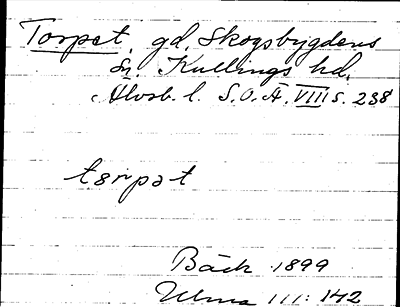 Torpet, gd, Skogsbygdens
sn. Kullings hd.
Älvsb. l. S.O.Ä. VIII s. 238
tɵrpət
Bäck 1899
Ulma 111: 142